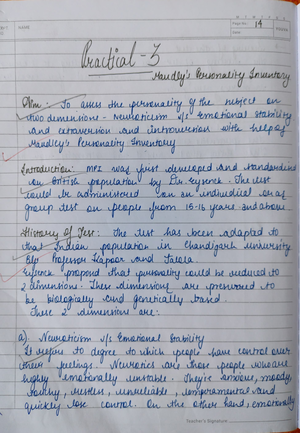 NAME
Page No. 14
Date
Practical - 3
Maudley's Personality Inventory
Aim: To asses the personality of the subject on
two dimensions - Neuroticism v/s Emotional Stability
and extraversion and introversion with help of
Maudley's Personality Inventory
Introduction: MPI was first developed and standardised
on British population by Dr. Eysenck. The test
could be administered on an individual or as
group test on people from 15-16 years and above.
History of Test: The test has been adapted to
that Indian population in Chandigarh university
by Professor Kapoor and
Eysenck proposed that personality could be reduced to
2 dimensions. These dimensions are presumed to
be biologically and genetically
These 2 dimensions are:
a) Neuroticism v/s Emotional Stability
It refers to degree to which people have control over
their feelings. Neurotics are those people who are
highly emotionally unstable. They're anxious, moody,
touchy, restless, unreliable, temperamental and
quickly lose control. On the other hand, emotionally
Teacher's Signature